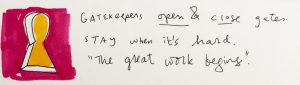 GATEKEEPERS open & close gates.
STAY when it's hard.
"The great work begins".